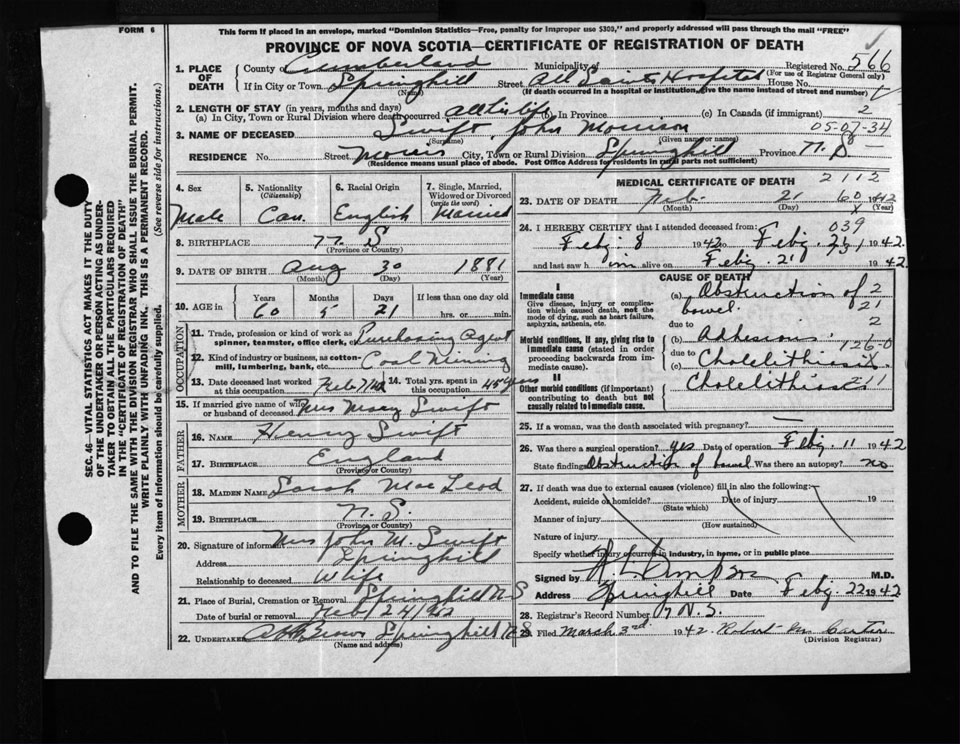 FORM 6
This form if placed in an envelope, marked "Dominion Statistics—Free, penalty for improper use $300," and properly addressed will pass through the mail "FREE"
PROVINCE OF NOVA SCOTIA—CERTIFICATE OF REGISTRATION OF DEATH
Registered No. 566
(For use of Registrar General only)
1. PLACE OF DEATH
County of Cumberland Municipality of
If in City or Town Springhill Street All Saints Hospital House No.
(Name) (If death occurred in a hospital or institution, give the name instead of street and number)
2. LENGTH OF STAY (in years, months and days)
(a) In City, Town or Rural Division where death occurred all his life (b) In Province (c) In Canada (if immigrant) 2
3. NAME OF DECEASED Swift, John Morrison
(Surname) (Given name or names)
05-07-34
RESIDENCE No. Street Morris City, Town or Rural Division Springhill Province N. S
(Residence means usual place of abode. Post Office Address for residents in rural parts not sufficient)
4. Sex
Male
5. Nationality
(Citizenship)
Can.
6. Racial Origin
English
7. Single, Married, Widowed or Divorced
(write the word)
Married
8. BIRTHPLACE N. S
(Province or Country)
9. DATE OF BIRTH Aug 30 1881
(Month) (Day) (Year)
10. AGE in Years Months Days If less than one day old
60 5 21 hrs. or min.
OCCUPATION
11. Trade, profession or kind of work as spinner, teamster, office clerk, etc. Purchasing Agent
12. Kind of industry or business, as cotton-mill, lumbering, bank, etc. Coal Mining
13. Date deceased last worked at this occupation Feb 7/42 14. Total yrs. spent in this occupation 45 years
15. If married give name of wife or husband of deceased Mrs Mary Swift
FATHER
16. NAME Henry Swift
17. BIRTHPLACE England
(Province or Country)
MOTHER
18. MAIDEN NAME Sarah MacLeod
19. BIRTHPLACE N. S.
(Province or Country)
20. Signature of informant Mrs John M. Swift
Address Springhill
Relationship to deceased Wife
21. Place of Burial, Cremation or Removal Springhill N S
Date of burial or removal Feb 24/942
22. UNDERTAKER Brown Springhill N S
(Name and address)
MEDICAL CERTIFICATE OF DEATH 2112
23. DATE OF DEATH Feb. 21 1942
(Month) (Day) (Year)
24. I HEREBY CERTIFY that I attended deceased from: 039
Feby 8 1942 to Feby. 21 1942
and last saw him alive on Feby. 21 1942.
CAUSE OF DEATH
I
Immediate cause
Give disease, injury or complication which caused death, not the mode of dying, such as heart failure, asphyxia, asthenia, etc.
(a) Obstruction of bowel.
due to
Morbid conditions, if any, giving rise to immediate cause (stated in order proceeding backwards from immediate cause).
(b) Adhesions
due to
126-0
(c) Cholelithiasis
II
Other morbid conditions (if important) contributing to death but not causally related to immediate cause.
Cholelithiasis
25. If a woman, was the death associated with pregnancy?
26. Was there a surgical operation? yes Date of operation Feby. 11 1942
State findings Obstruction of bowel Was there an autopsy? no
27. If death was due to external causes (violence) fill in also the following:
Accident, suicide or homicide? Date of injury 19
(State which)
Manner of injury
(How sustained)
Nature of injury
Specify whether injury occurred in industry, in home, or in public place
Signed by M.D.
Address Springhill Date Feby. 22 1942
28. Registrar's Record Number N.S.
29. Filed March 3rd 1942. Robert M. Carter
(Division Registrar)
SEC. 46—VITAL STATISTICS ACT MAKES IT THE DUTY
OF THE UNDERTAKER OR PERSON ACTING AS UNDER-
TAKER TO OBTAIN ALL THE PARTICULARS REQUIRED
IN THE "CERTIFICATE OF REGISTRATION OF DEATH"
AND TO FILE THE SAME WITH THE DIVISION REGISTRAR WHO SHALL ISSUE THE BURIAL PERMIT.
WRITE PLAINLY WITH UNFADING INK. THIS IS A PERMANENT RECORD.
Every item of information should be carefully supplied. (See reverse side for instructions.)